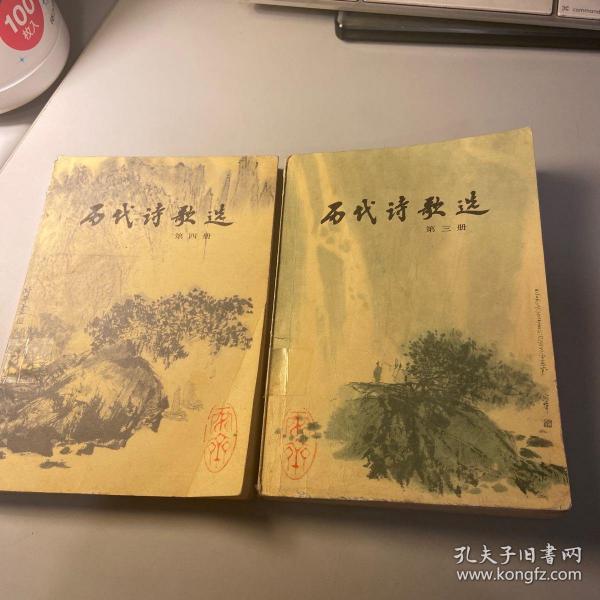 100
枚入
command
历代诗歌选
第四册
历代诗歌选
第三册
孔夫子旧书网
www.kongfz.com